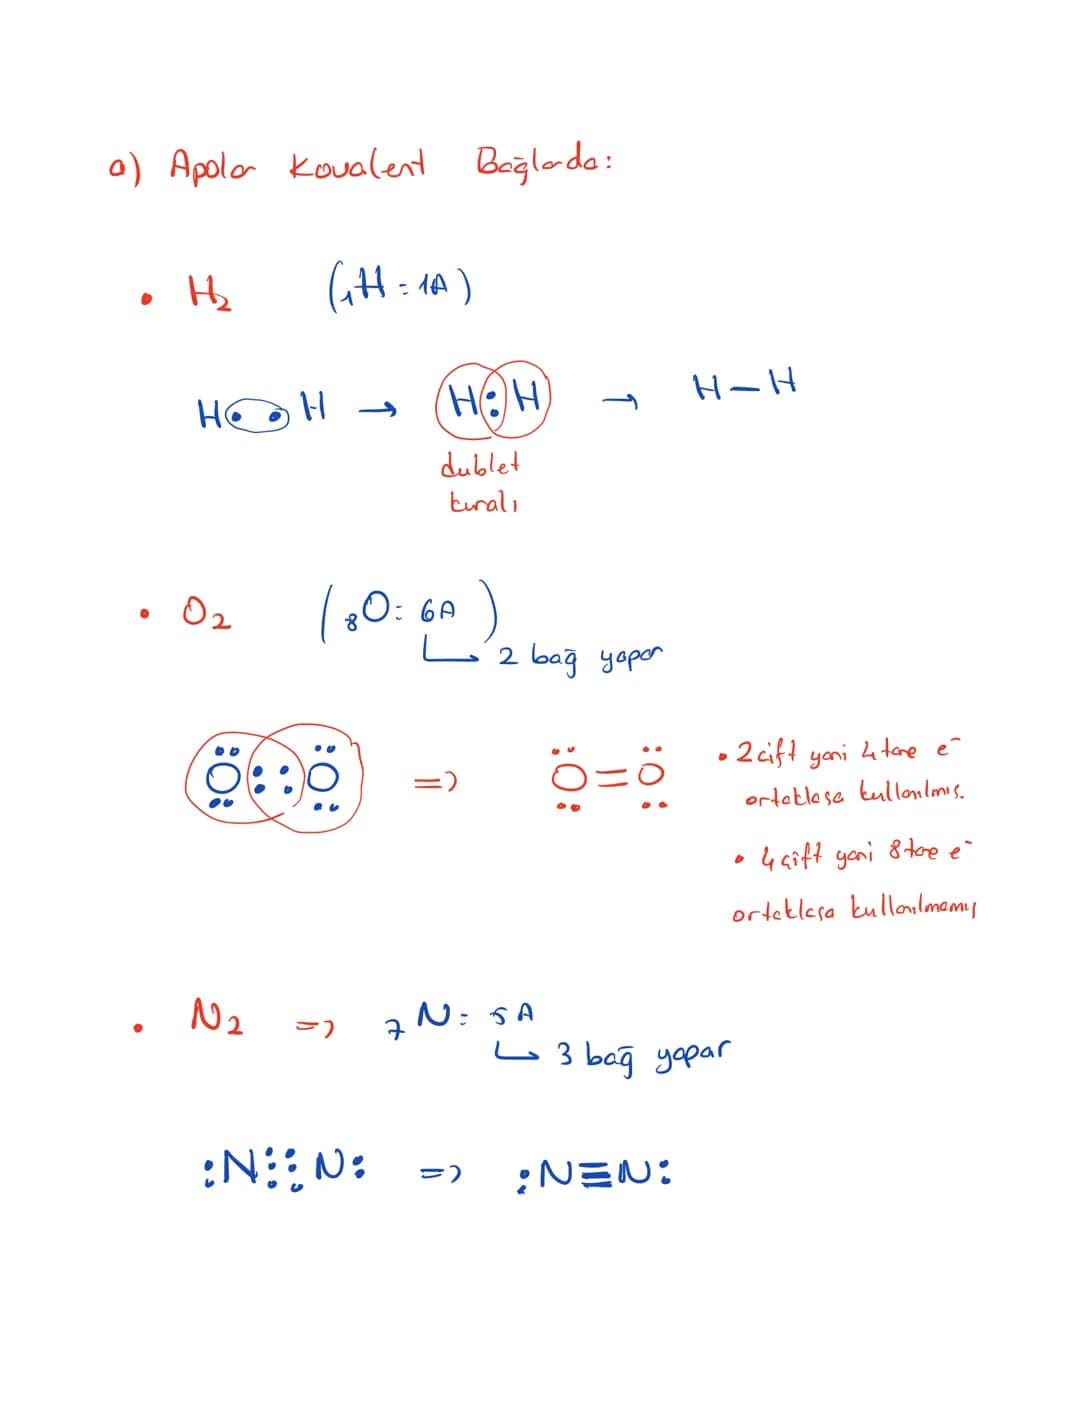 a) Apolar Kovalent Bağlarda:
• H₂ (₁H = 1A)
H• •H → H:H → H–H
dublet
kuralı
• O₂ (₈O: 6A)
↳ 2 bağ yapar
Ö::Ö => Ö=Ö
• 2 çift yani 4 tane e⁻
ortaklaşa kullanılmış.
• 4 çift yani 8 tane e⁻
ortaklaşa kullanılmamış
• N₂ => ₇N: 5A
↳ 3 bağ yapar
:N⋮⋮N: => :N≡N: